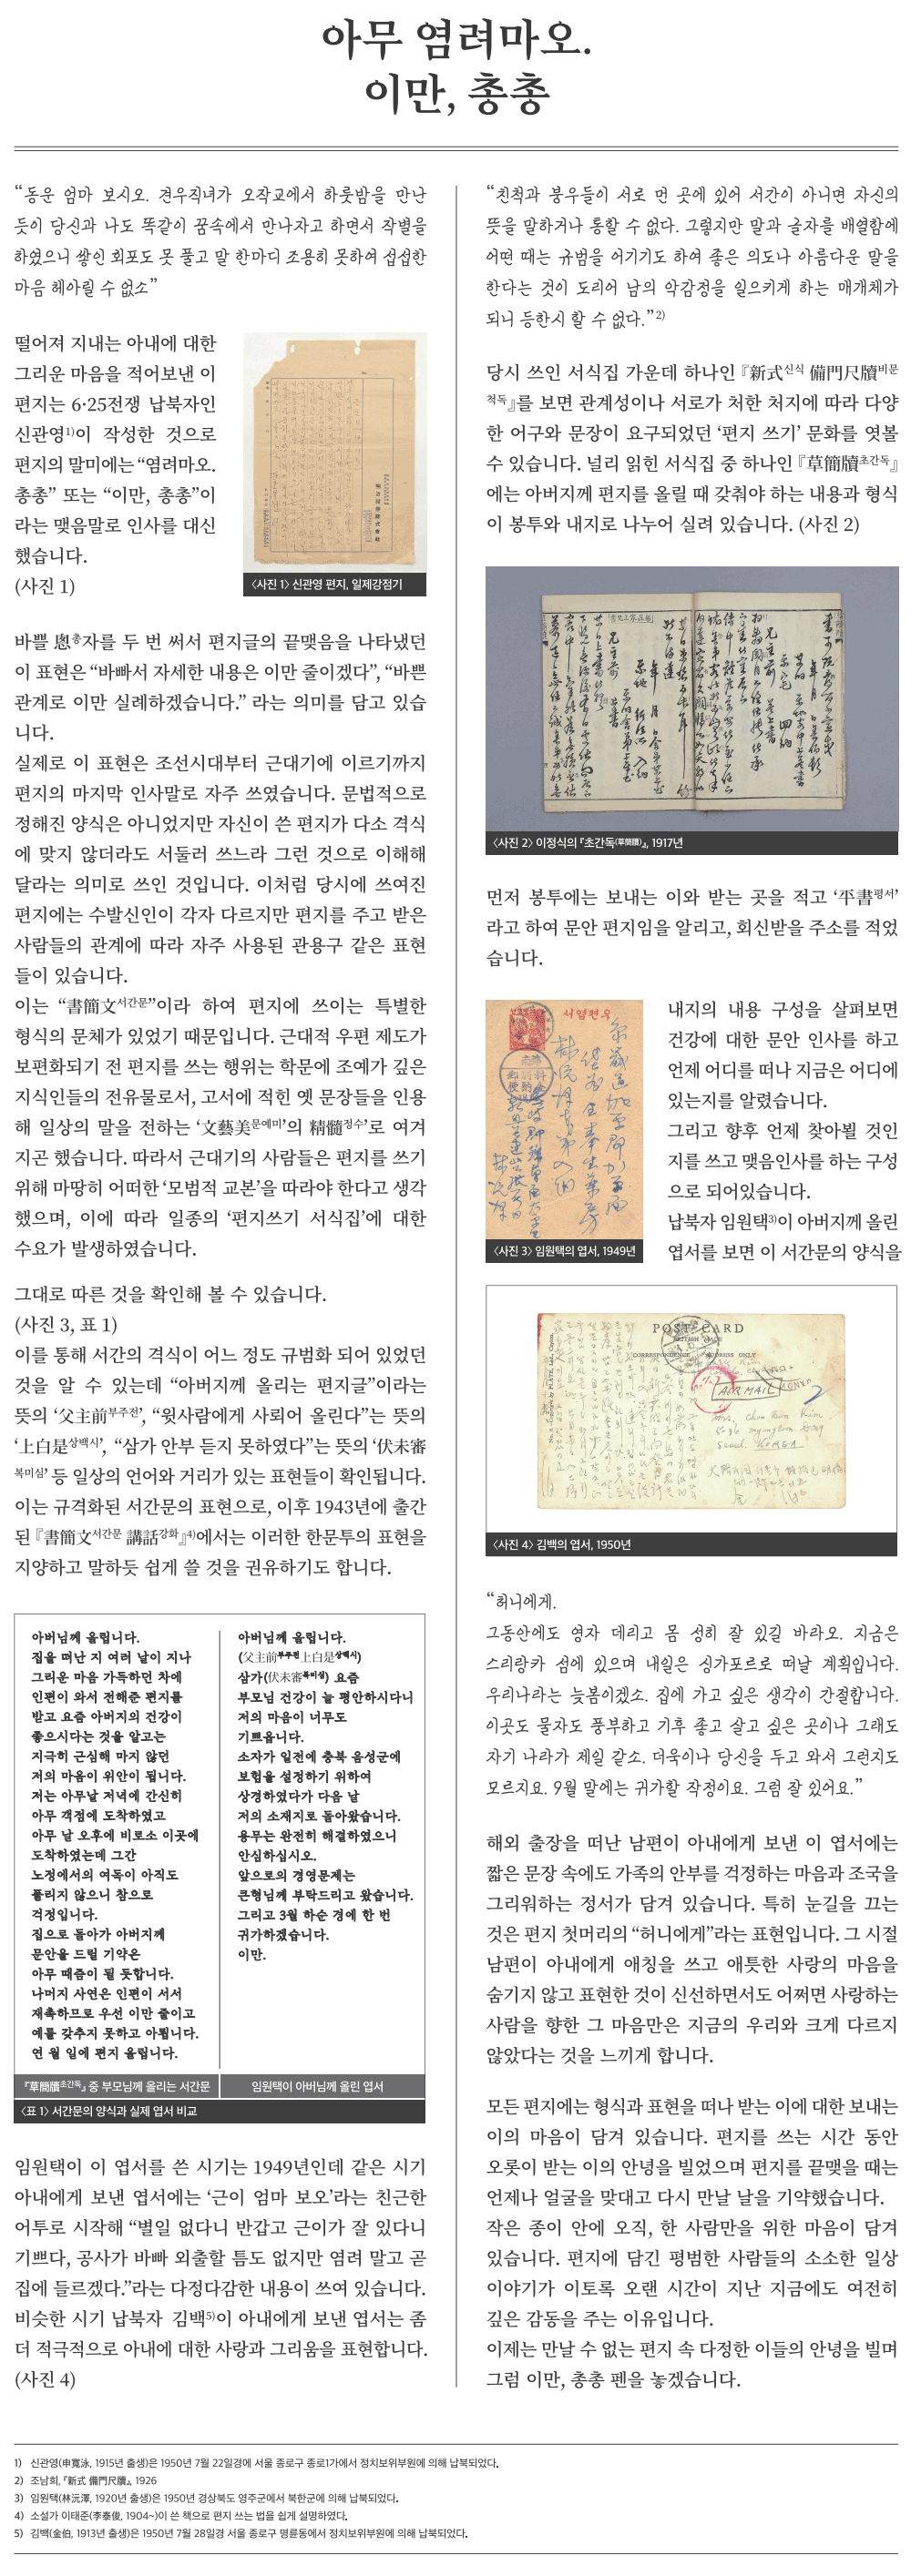 아무 염려마오.
이만, 총총
“동운 엄마 보시오. 견우직녀가 오작교에서 하룻밤을 만난
듯이 당신과 나도 똑같이 꿈속에서 만나자고 하면서 작별을
하였으니 쌓인 회포도 못 풀고 말 한마디 조용히 못하여 섭섭한
마음 헤아릴 수 없소”
떨어져 지내는 아내에 대한
그리운 마음을 적어보낸 이
편지는 6·25전쟁 납북자인
신관영1)이 작성한 것으로
편지의 말미에는 “염려마오.
총총” 또는 “이만, 총총”이
라는 맺음말로 인사를 대신
했습니다.
(사진 1)
〈사진 1〉 신관영 편지, 일제강점기
바쁠 悤총자를 두 번 써서 편지글의 끝맺음을 나타냈던
이 표현은 “바빠서 자세한 내용은 이만 줄이겠다”, “바쁜
관계로 이만 실례하겠습니다.” 라는 의미를 담고 있습
니다.
실제로 이 표현은 조선시대부터 근대기에 이르기까지
편지의 마지막 인사말로 자주 쓰였습니다. 문법적으로
정해진 양식은 아니었지만 자신이 쓴 편지가 다소 격식
에 맞지 않더라도 서둘러 쓰느라 그런 것으로 이해해
달라는 의미로 쓰인 것입니다. 이처럼 당시에 쓰여진
편지에는 수발신인이 각자 다르지만 편지를 주고 받은
사람들의 관계에 따라 자주 사용된 관용구 같은 표현
들이 있습니다.
이는 “書簡文서간문”이라 하여 편지에 쓰이는 특별한
형식의 문체가 있었기 때문입니다. 근대적 우편 제도가
보편화되기 전 편지를 쓰는 행위는 학문에 조예가 깊은
지식인들의 전유물로서, 고서에 적힌 옛 문장들을 인용
해 일상의 말을 전하는 ‘文藝美문예미’의 精髓정수’로 여겨
지곤 했습니다. 따라서 근대기의 사람들은 편지를 쓰기
위해 마땅히 어떠한 ‘모범적 교본’을 따라야 한다고 생각
했으며, 이에 따라 일종의 ‘편지쓰기 서식집’에 대한
수요가 발생하였습니다.
“친척과 붕우들이 서로 먼 곳에 있어 서간이 아니면 자신의
뜻을 말하거나 통할 수 없다. 그렇지만 말과 글자를 배열함에
어떤 때는 규범을 어기기도 하여 좋은 의도나 아름다운 말을
한다는 것이 도리어 남의 악감정을 일으키게 하는 매개체가
되니 등한시 할 수 없다.”2)
당시 쓰인 서식집 가운데 하나인 『新式신식 備門尺牘비문
척독』를 보면 관계성이나 서로가 처한 처지에 따라 다양
한 어구와 문장이 요구되었던 ‘편지 쓰기’ 문화를 엿볼
수 있습니다. 널리 읽힌 서식집 중 하나인 『草簡牘초간독』
에는 아버지께 편지를 올릴 때 갖춰야 하는 내용과 형식
이 봉투와 내지로 나누어 실려 있습니다. (사진 2)
〈사진 2〉 이정식의 『초간독(草簡牘)』, 1917년
먼저 봉투에는 보내는 이와 받는 곳을 적고 ‘平書평서’
라고 하여 문안 편지임을 알리고, 회신받을 주소를 적었
습니다.
〈사진 3〉 임원택의 엽서, 1949년
내지의 내용 구성을 살펴보면
건강에 대한 문안 인사를 하고
언제 어디를 떠나 지금은 어디에
있는지를 알렸습니다.
그리고 향후 언제 찾아뵐 것인
지를 쓰고 맺음인사를 하는 구성
으로 되어있습니다.
납북자 임원택3)이 아버지께 올린
엽서를 보면 이 서간문의 양식을
그대로 따른 것을 확인해 볼 수 있습니다.
(사진 3, 표 1)
이를 통해 서간의 격식이 어느 정도 규범화 되어 있었던
것을 알 수 있는데 “아버지께 올리는 편지글”이라는
뜻의 ‘父主前부주전’, “윗사람에게 사뢰어 올린다”는 뜻의
‘上白是상백시’, “삼가 안부 듣지 못하였다”는 뜻의 ‘伏未審
복미심’ 등 일상의 언어와 거리가 있는 표현들이 확인됩니다.
이는 규격화된 서간문의 표현으로, 이후 1943년에 출간
된 『書簡文서간문 講話강화』4)에서는 이러한 한문투의 표현을
지양하고 말하듯 쉽게 쓸 것을 권유하기도 합니다.
아버님께 올립니다.
집을 떠난 지 여러 날이 지나
그리운 마음 가득하던 차에
인편이 와서 전해준 편지를
받고 요즘 아버지의 건강이
좋으시다는 것을 알고는
지극히 근심해 마지 않던
저의 마음이 위안이 됩니다.
저는 아무날 저녁에 간신히
아무 객점에 도착하였고
아무 날 오후에 비로소 이곳에
도착하였는데 그간
노정에서의 여독이 아직도
풀리지 않으니 참으로
걱정입니다.
집으로 돌아가 아버지께
문안을 드릴 기약은
아무 때쯤이 될 듯합니다.
나머지 사연은 인편이 서서
재촉하므로 우선 이만 줄이고
예를 갖추지 못하고 아룁니다.
연 월 일에 편지 올립니다.
『草簡牘초간독』 중 부모님께 올리는 서간문
아버님께 올립니다.
(父主前부주전上白是상백시)
삼가(伏未審복미심) 요즘
부모님 건강이 늘 평안하시다니
저의 마음이 너무도
기쁘옵니다.
소자가 일전에 충북 음성군에
보험을 설정하기 위하여
상경하였다가 다음 날
저의 소재지로 돌아왔습니다.
용무는 완전히 해결하였으니
안심하십시오.
앞으로의 경영문제는
큰형님께 부탁드리고 왔습니다.
그리고 3월 하순 경에 한 번
귀가하겠습니다.
이만.
임원택이 아버님께 올린 엽서
〈표 1〉 서간문의 양식과 실제 엽서 비교
임원택이 이 엽서를 쓴 시기는 1949년인데 같은 시기
아내에게 보낸 엽서에는 ‘근이 엄마 보오’라는 친근한
어투로 시작해 “별일 없다니 반갑고 근이가 잘 있다니
기쁘다, 공사가 바빠 외출할 틈도 없지만 염려 말고 곧
집에 들르겠다.”라는 다정다감한 내용이 쓰여 있습니다.
비슷한 시기 납북자 김백5)이 아내에게 보낸 엽서는 좀
더 적극적으로 아내에 대한 사랑과 그리움을 표현합니다.
(사진 4)
POST CARD
BRITISH MADE
CORRESPONDENCE
ADDRESS ONLY
AIR MAIL
Seoul KOREA
〈사진 4〉 김백의 엽서, 1950년
“허니에게.
그동안에도 영자 데리고 몸 성히 잘 있길 바라오. 지금은
스리랑카 섬에 있으며 내일은 싱가포르로 떠날 계획입니다.
우리나라는 늦봄이겠소. 집에 가고 싶은 생각이 간절합니다.
이곳도 물자도 풍부하고 기후 좋고 살고 싶은 곳이나 그래도
자기 나라가 제일 같소. 더욱이나 당신을 두고 와서 그런지도
모르지요. 9월 말에는 귀가할 작정이요. 그럼 잘 있어요.”
해외 출장을 떠난 남편이 아내에게 보낸 이 엽서에는
짧은 문장 속에도 가족의 안부를 걱정하는 마음과 조국을
그리워하는 정서가 담겨 있습니다. 특히 눈길을 끄는
것은 편지 첫머리의 “허니에게”라는 표현입니다. 그 시절
남편이 아내에게 애칭을 쓰고 애틋한 사랑의 마음을
숨기지 않고 표현한 것이 신선하면서도 어쩌면 사랑하는
사람을 향한 그 마음만은 지금의 우리와 크게 다르지
않았다는 것을 느끼게 합니다.
모든 편지에는 형식과 표현을 떠나 받는 이에 대한 보내는
이의 마음이 담겨 있습니다. 편지를 쓰는 시간 동안
오롯이 받는 이의 안녕을 빌었으며 편지를 끝맺을 때는
언제나 얼굴을 맞대고 다시 만날 날을 기약했습니다.
작은 종이 안에 오직, 한 사람만을 위한 마음이 담겨
있습니다. 편지에 담긴 평범한 사람들의 소소한 일상
이야기가 이토록 오랜 시간이 지난 지금에도 여전히
깊은 감동을 주는 이유입니다.
이제는 만날 수 없는 편지 속 다정한 이들의 안녕을 빌며
그럼 이만, 총총 펜을 놓겠습니다.
1) 신관영(申寬泳, 1915년 출생)은 1950년 7월 22일경에 서울 종로구 종로1가에서 정치보위부원에 의해 납북되었다.
2) 조남희, 『新式 備門尺牘』, 1926
3) 임원택(林沅澤, 1920년 출생)은 1950년 경상북도 영주군에서 북한군에 의해 납북되었다.
4) 소설가 이태준(李泰俊, 1904~)이 쓴 책으로 편지 쓰는 법을 쉽게 설명하였다.
5) 김백(金伯, 1913년 출생)은 1950년 7월 28일경 서울 종로구 명륜동에서 정치보위부원에 의해 납북되었다.